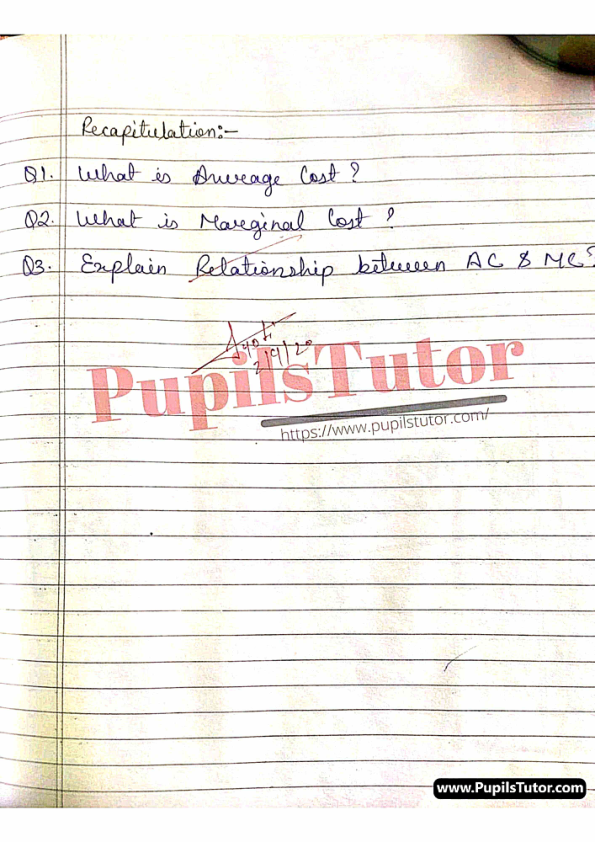 Recapitulation:-
Q1. What is Average Cost ?
Q2. What is Marginal Cost ?
Q3. Explain Relationship between AC & MC?
Jyoti
2/9/20
PupilsTutor
https://www.pupilstutor.com/
www.PupilsTutor.com